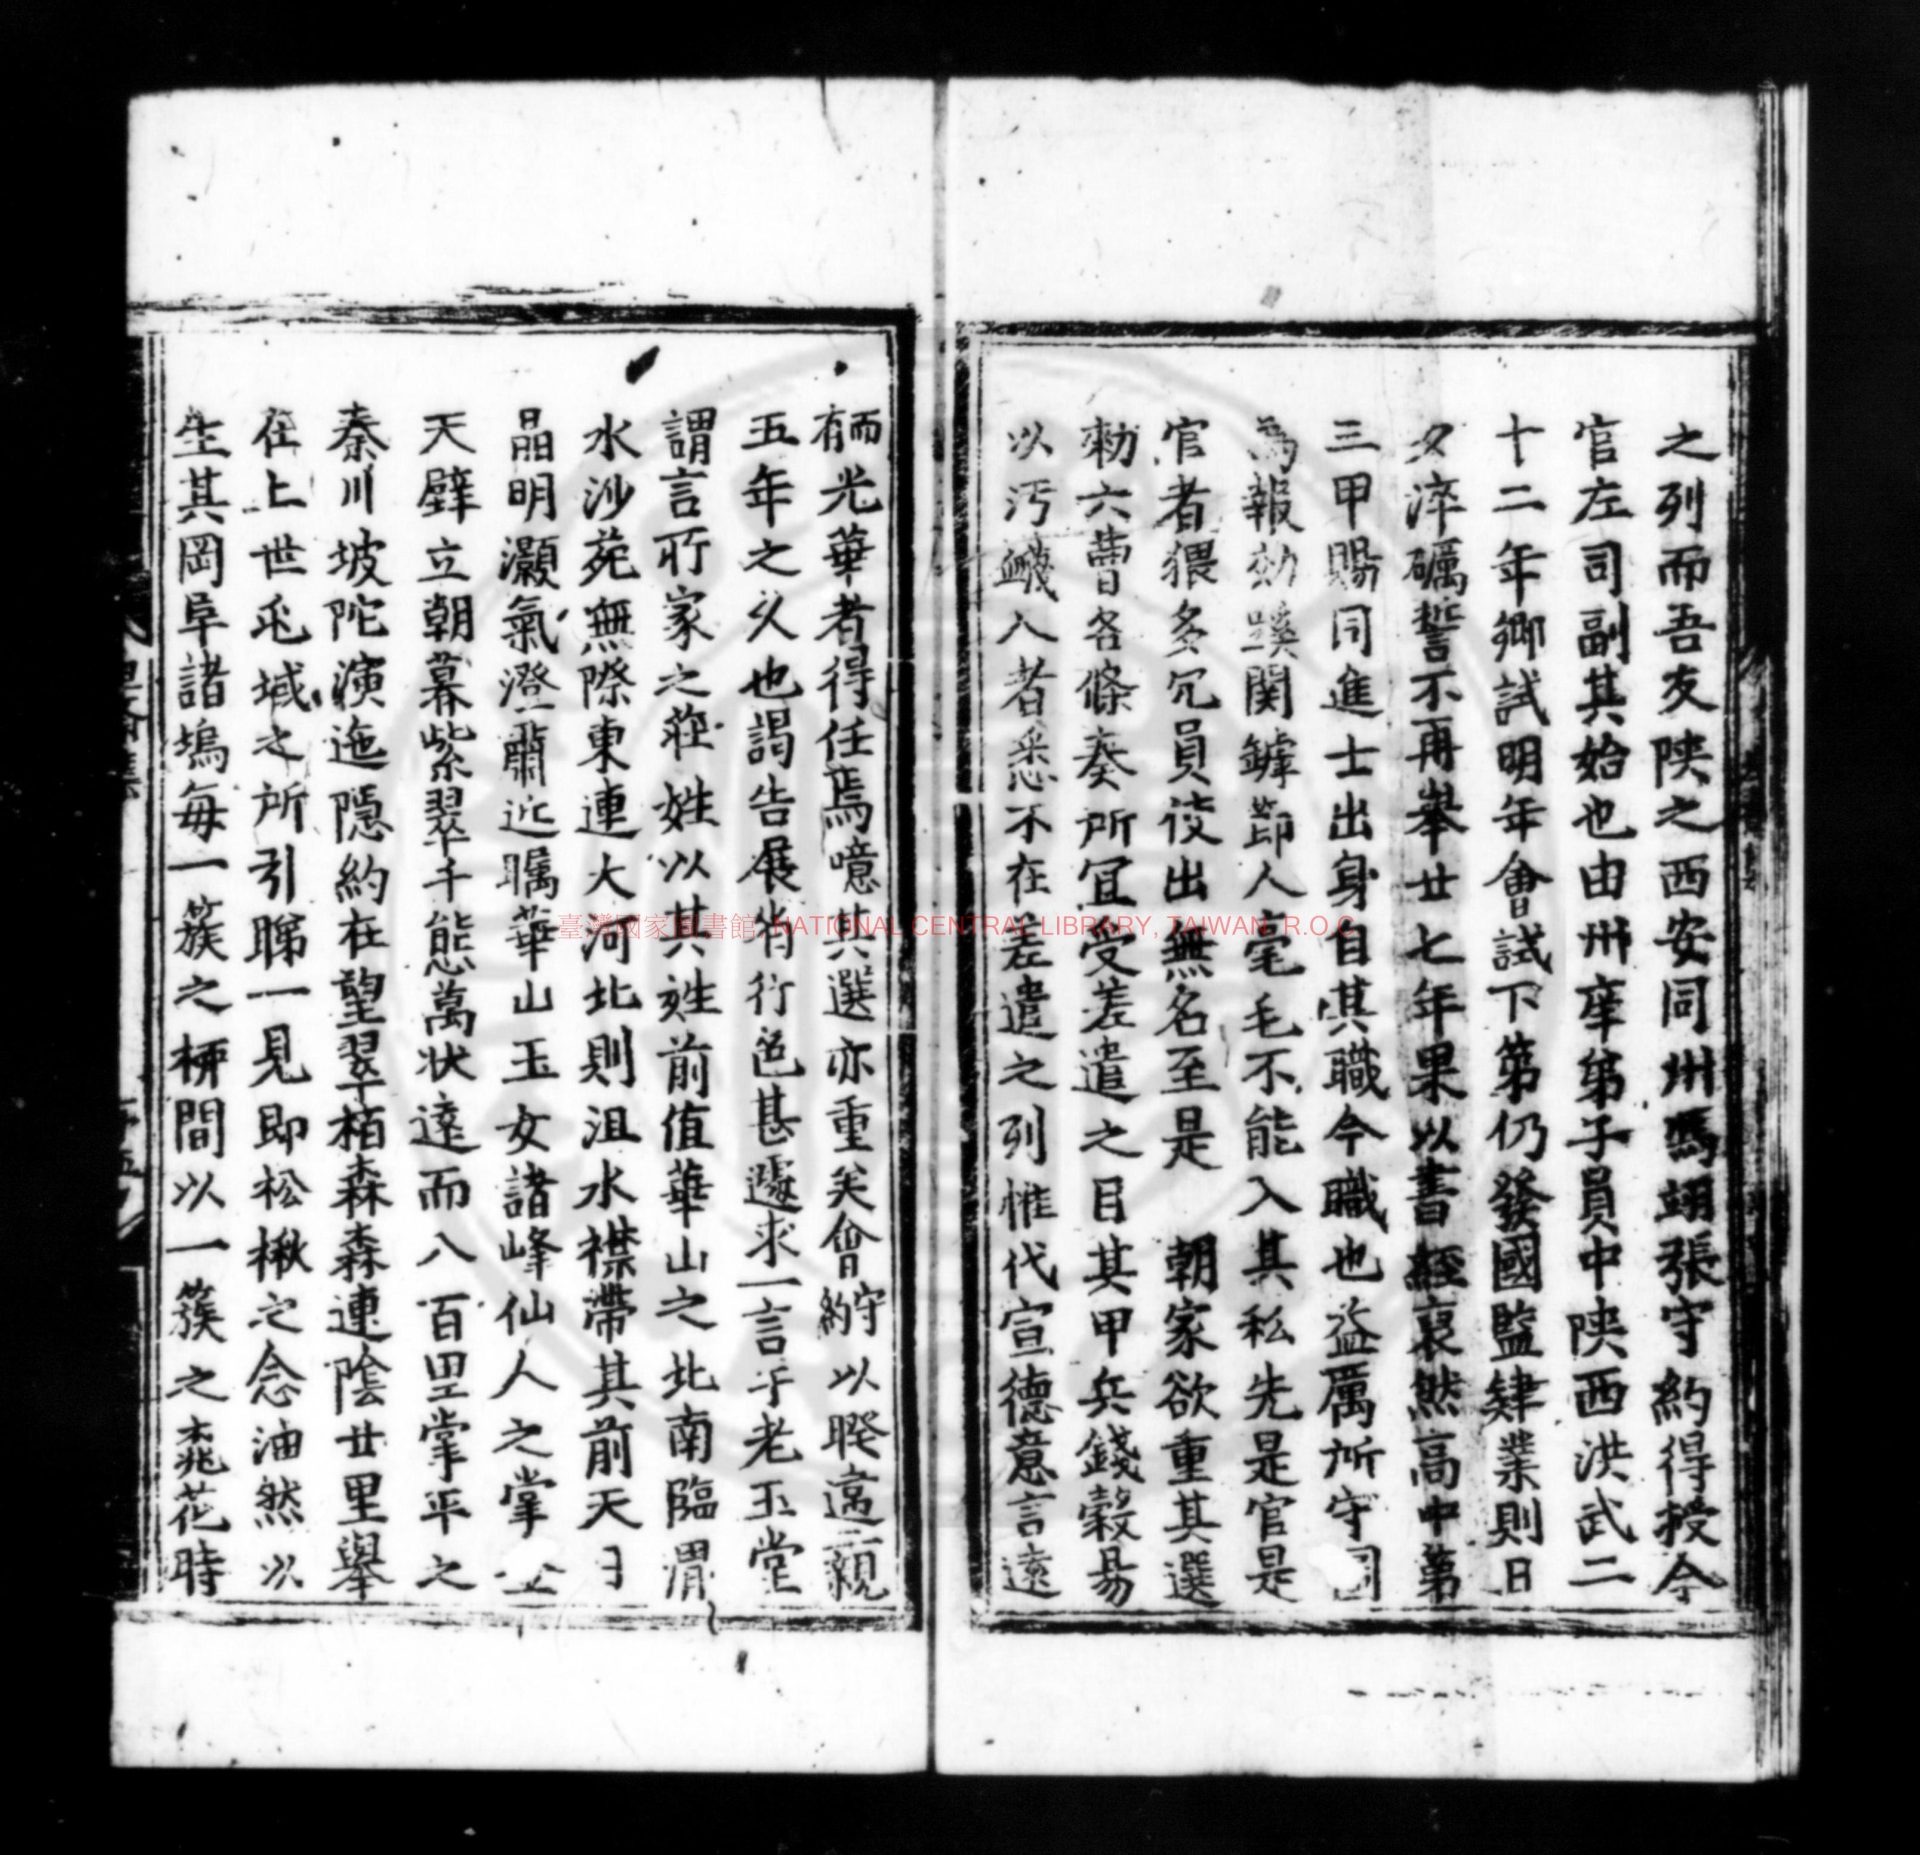 之列而吾友陕之西安同州馮翊張守約得授今
官左司副其始也由州庠弟子員中陕西洪武二
十二年鄉試明年會試下第仍發國監肄業則日
夕淬礪誓不再舉廿七年果以書經裒然高中第
三甲賜同進士出身自其職今職也益厲所守図
為報効蹊関鎼節人毫毛不能入其私先是官是
官者猥多冗員役出無名至是　朝家欲重其選
勑六曹各條奏所冝受差遣之目其甲兵錢穀易
以汚衊入者悉不在差遣之列惟代宣德意言遠
而有光華者得任焉噫其選亦重矣會守約以暌違二親
五年之久也謁告展省行色甚遽求一言于老玉堂
謂言所家之莊姓以其姓前值華山之北南臨渭
水沙苑無際東連大河北則沮水襟帶其前天日
晶明灝氣澄肅近矚華山玉女諸峰仙人之掌
天壁立朝暮紫翠千態萬状遠而八百里掌平之
秦川坡陀演迤隱約在望翠栢森森連陰廿里舉
在上世兆域之所引睇一見即松楸之念油然以
生其岡阜諸塢每一簇之栁間以一簇之桃花時
臺灣國家圖書館, NATIONAL CENTRAL LIBRARY, TAIWAN, R.O.C.